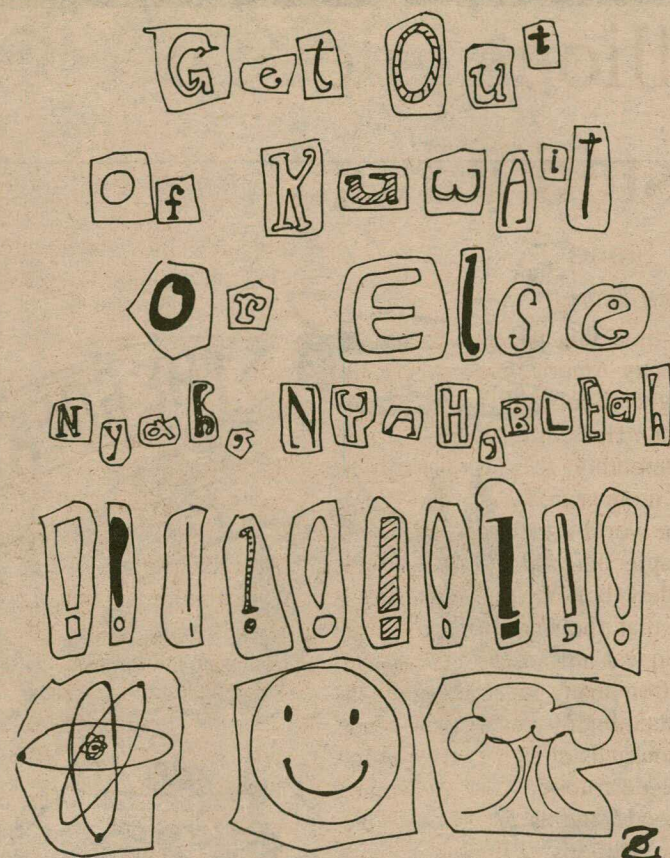 Get Out
Of KuwAit
Or Else
Nyah, NYAH, BLEah
!!!!!!!!!!